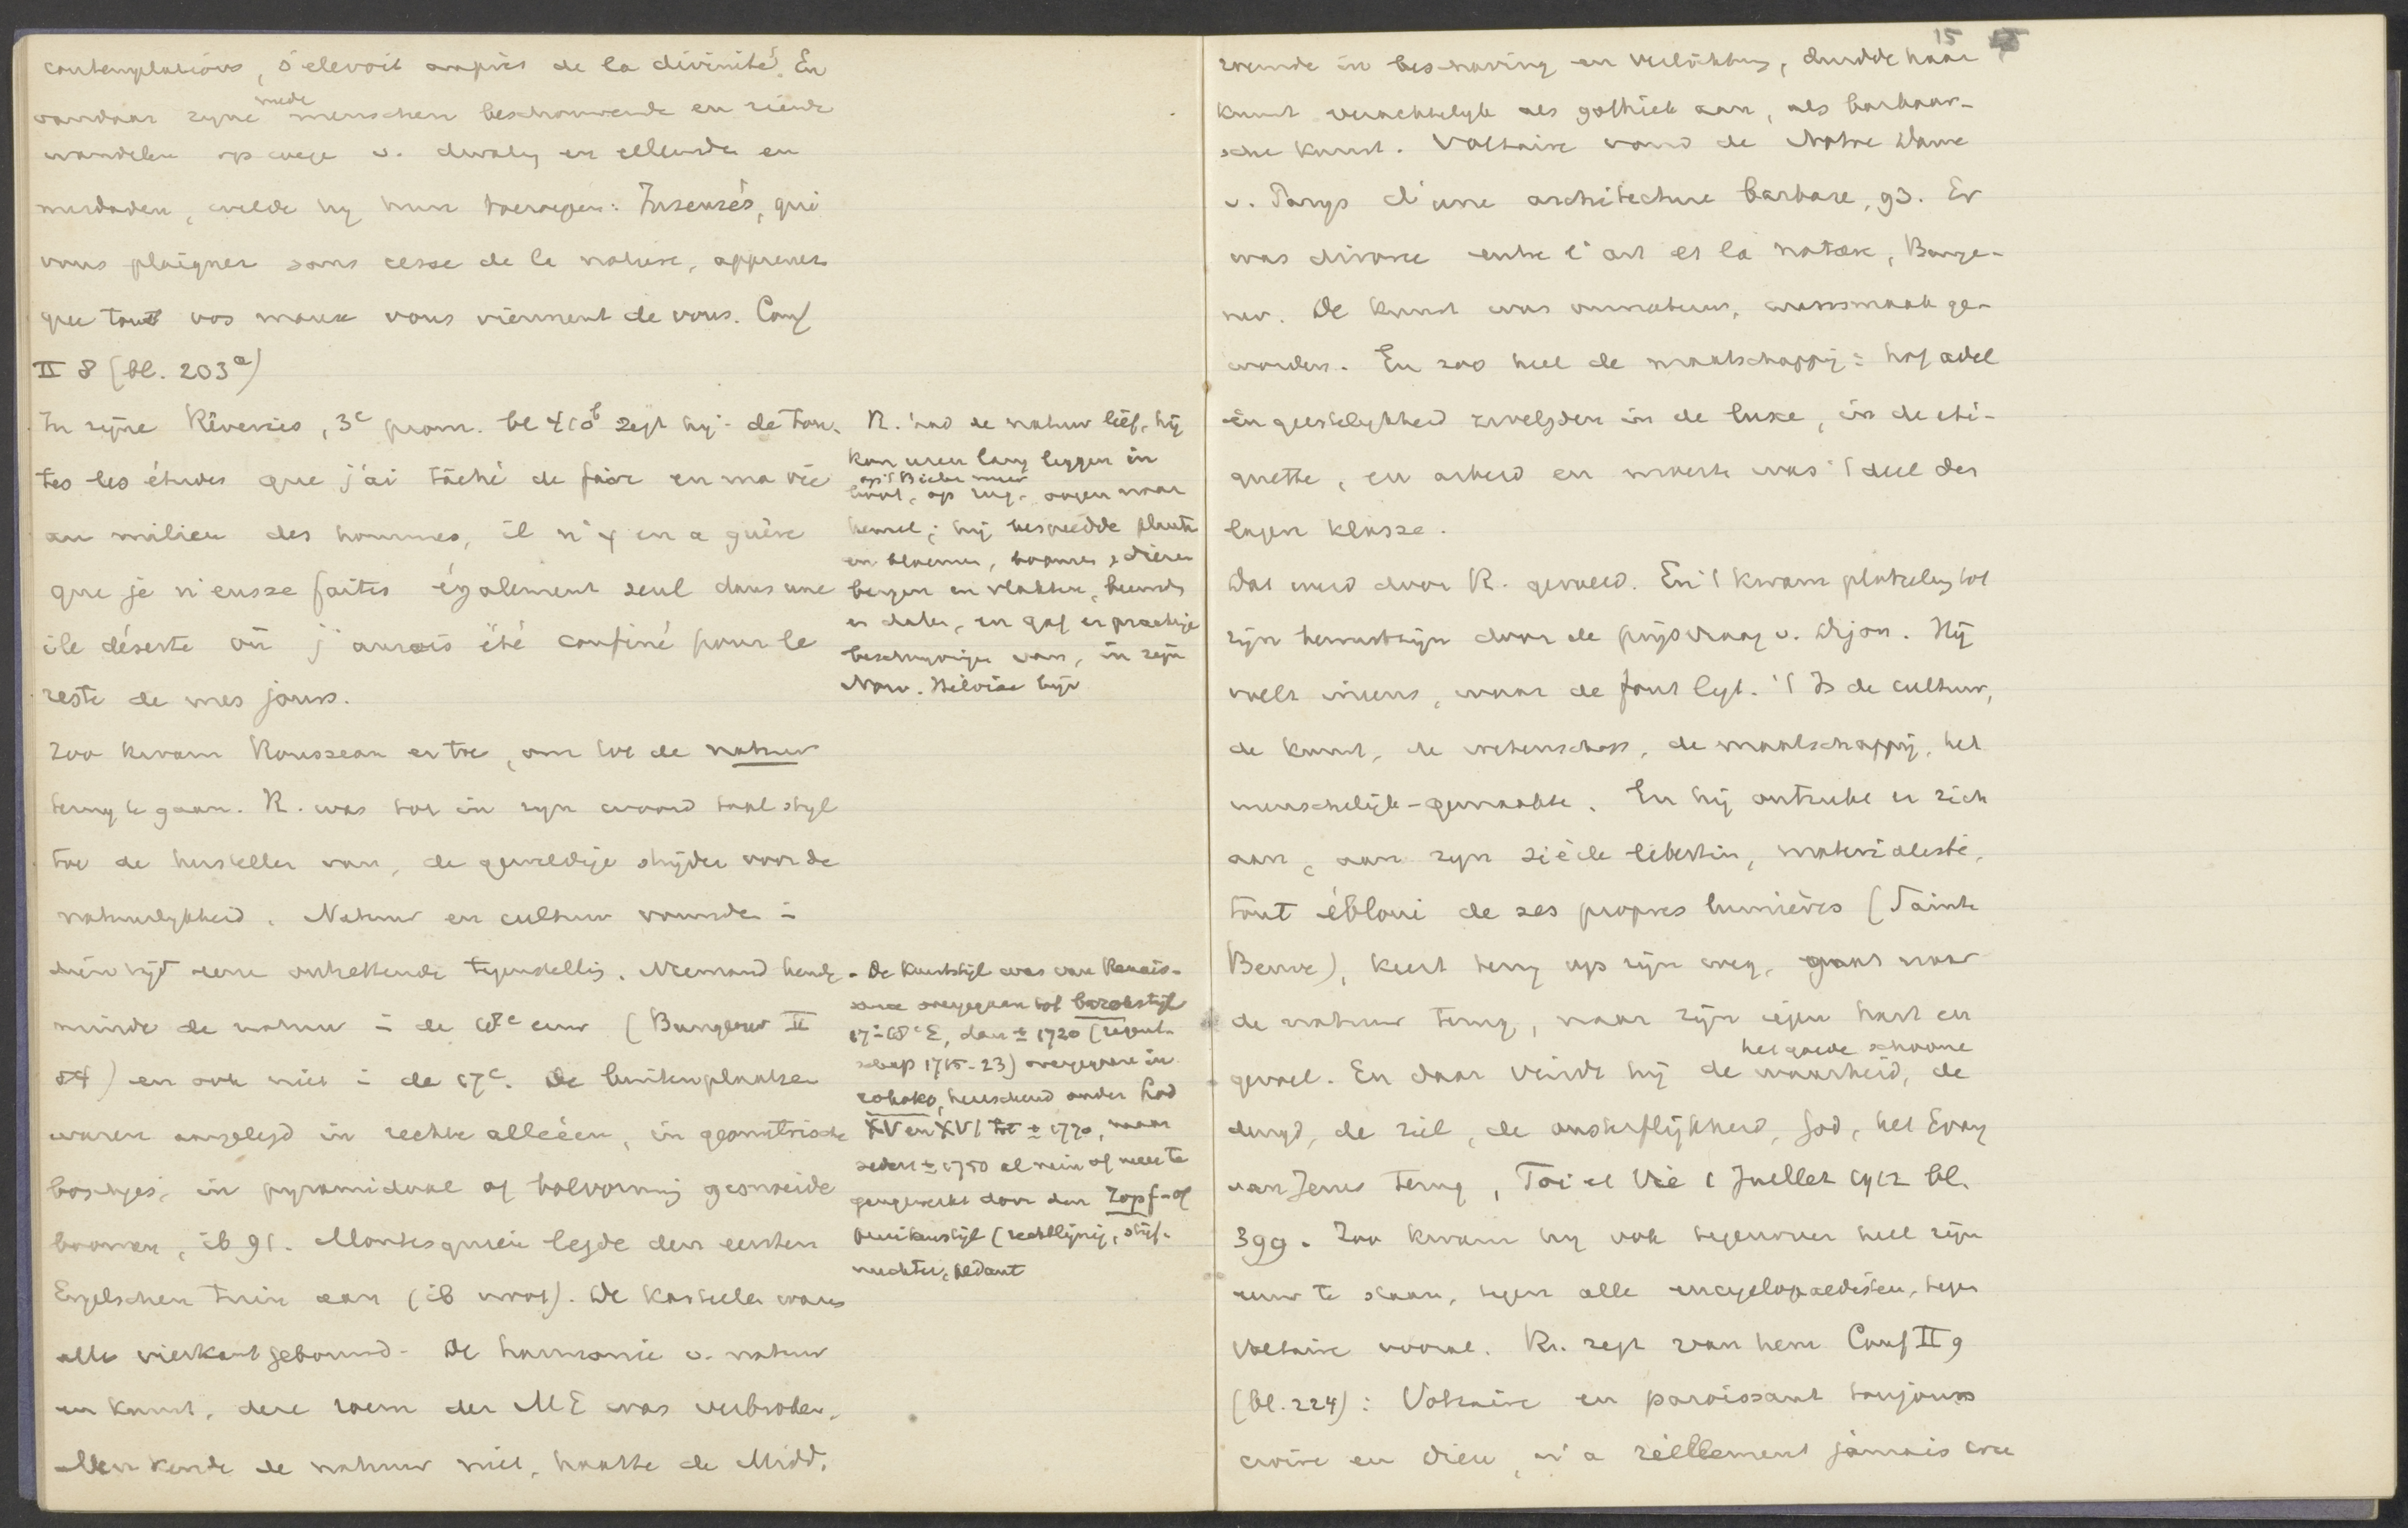 contemplations, s'elevoit auprès de la divinité. En
vandaar zyne mede menschen beschouwende en ziende
wandelen op wege v. dwaling en ellende en
misdaden, wilde hy hun toeroepen: Insensés, qui
vous plaignez sans cesse de la nature, apprenez
que tous vos maux vous viennent de vous. Conf
II 8 (bl. 203a)
In zijne Rêveries, 3e prom. bl 410b zegt hij: de tou-
tes les études que j'ai tâché de faire en ma vie
au milieu des hommes, il n'y en a guère
que je n'eusse faites également seul dans une
ile déserte où j'aurois été confiné pour le
reste de mes jours.
Zoo kwam Rousseau er toe, om tot de natuur
terug te gaan. R. was tot in zyn woord taal styl
toe de hersteller van, de geweldige stryder voor de
natuurlykheid. Natuur en cultuur vormden i
dien tijd eene ontzettende tegenstelling. Niemand kende,
minde de natuur i de 18e eeuw (Bungener II
84) en ook niet i de 17e. De buitenplaatsen
waren aangelegd in rechte alleëen, in geometrische
boschjes, in pyramidaal of bolvormig gesneide
boomen, ib 91. Montesquieu legde den eersten
Engelschen tuin aan (ib noot). De kasteelen waren
alle vierkant gebouwd. De harmonie v. natuur
en kunst, deze roem der ME was verbroken.
Men kende de natuur niet, haatte de Midd.
R. had de natuur lief, hij
kon uren lang liggen in
op 't Bieler meer
boot, op rug, oogen naar
hemel; hij bespiedde planten
en bloemen, boomen, dieren
bergen en vlakten, beemden
en dalen, en gaf er prachtige
beschryvingen van, in zijn
Nouv. Héloïse bijv
De kunststijl was van Renais-
sance overgegaan tot barokstijl
17-18e E, dan ± 1720 (regent-
schap 1715-23) overgegaan in
rokoko, heerschend onder Lod
XV en XVI tot ± 1770, maar
sedert ± 1750 al min of meer te
gengewerkt door den Zopf- of
pruikenstijl (rechtlijnig, stijf,
nuchter, pedant
15
roemde in beschaving en verlichting, duidde haar
kunst verachtelyk als gothiek aan, als barbaar-
sche kunst. Voltaire vond de Notre Dame
v. Parys d'une architecture barbare, 93. Er
was divorce entre l'art et la nature, Bunge-
ner. De kunst was onnatuur, wansmaak ge-
worden. En zoo heel de maatschappij: hof adel
en geestelykheid zwelgden in de luxe, in de eti-
quette, en arbeid en moeite was 't deel der
lagere klasse.
Dat werd door R. gevoeld. En 't kwam plotseling tot
zijn bewustzijn door de prijsvraag v. Dijon. Hij
voelt ineens, waar de fout ligt. 't Is de cultuur,
de kunst, de wetenschap, de maatschappij, het
menschelijk-gemaakte. En hij ontrukt er zich
aan, aan zyn siècle libertin, materialiste,
tout ébloui de ses propres lumières (Sainte
Beuve), keert terug op zijn weg, gaat naar
de natuur terug, naar zijn eigen hart en
gevoel. En daar vindt hij de waarheid, het goede schoone de
deugd, de ziel, de onsterflijkheid, God, het Evang
van Jezus terug, Foi et Vie 1 Juillet 1912 bl.
399. Zoo kwam hy ook tegenover heel zijn
eeuw te staan, tegen alle encyclopaedisten, tegen
Voltaire vooral. R. zegt van hem Conf II 9
(bl. 224): Voltaire en paroissant toujours
croire en Dieu, n'a réellement jamais cru